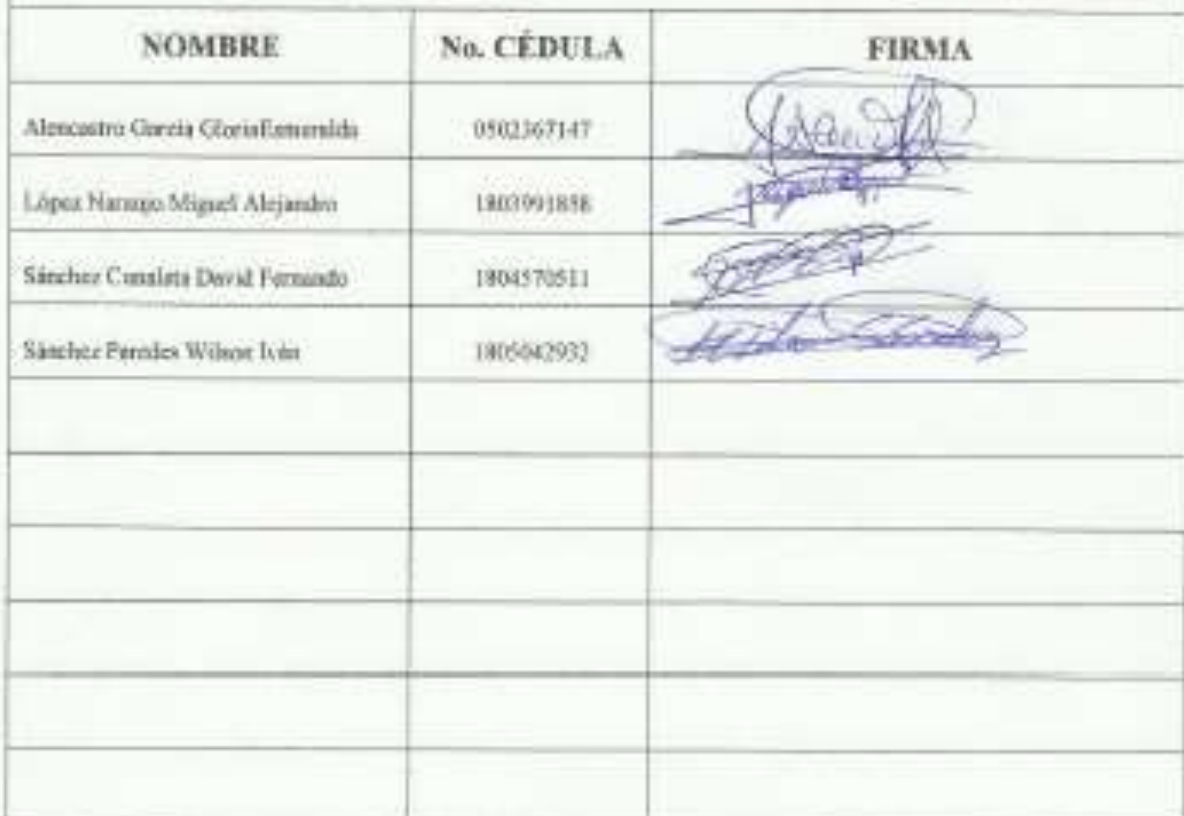 NOMBRE No. CÉDULA FIRMA
Alencastro García GloriaEsmeralda 0502367147
López Naranjo Miguel Alejandro 1803991858
Sánchez David Fernando 1804570511
Sánchez Paredes Wilson Iván 1805042932